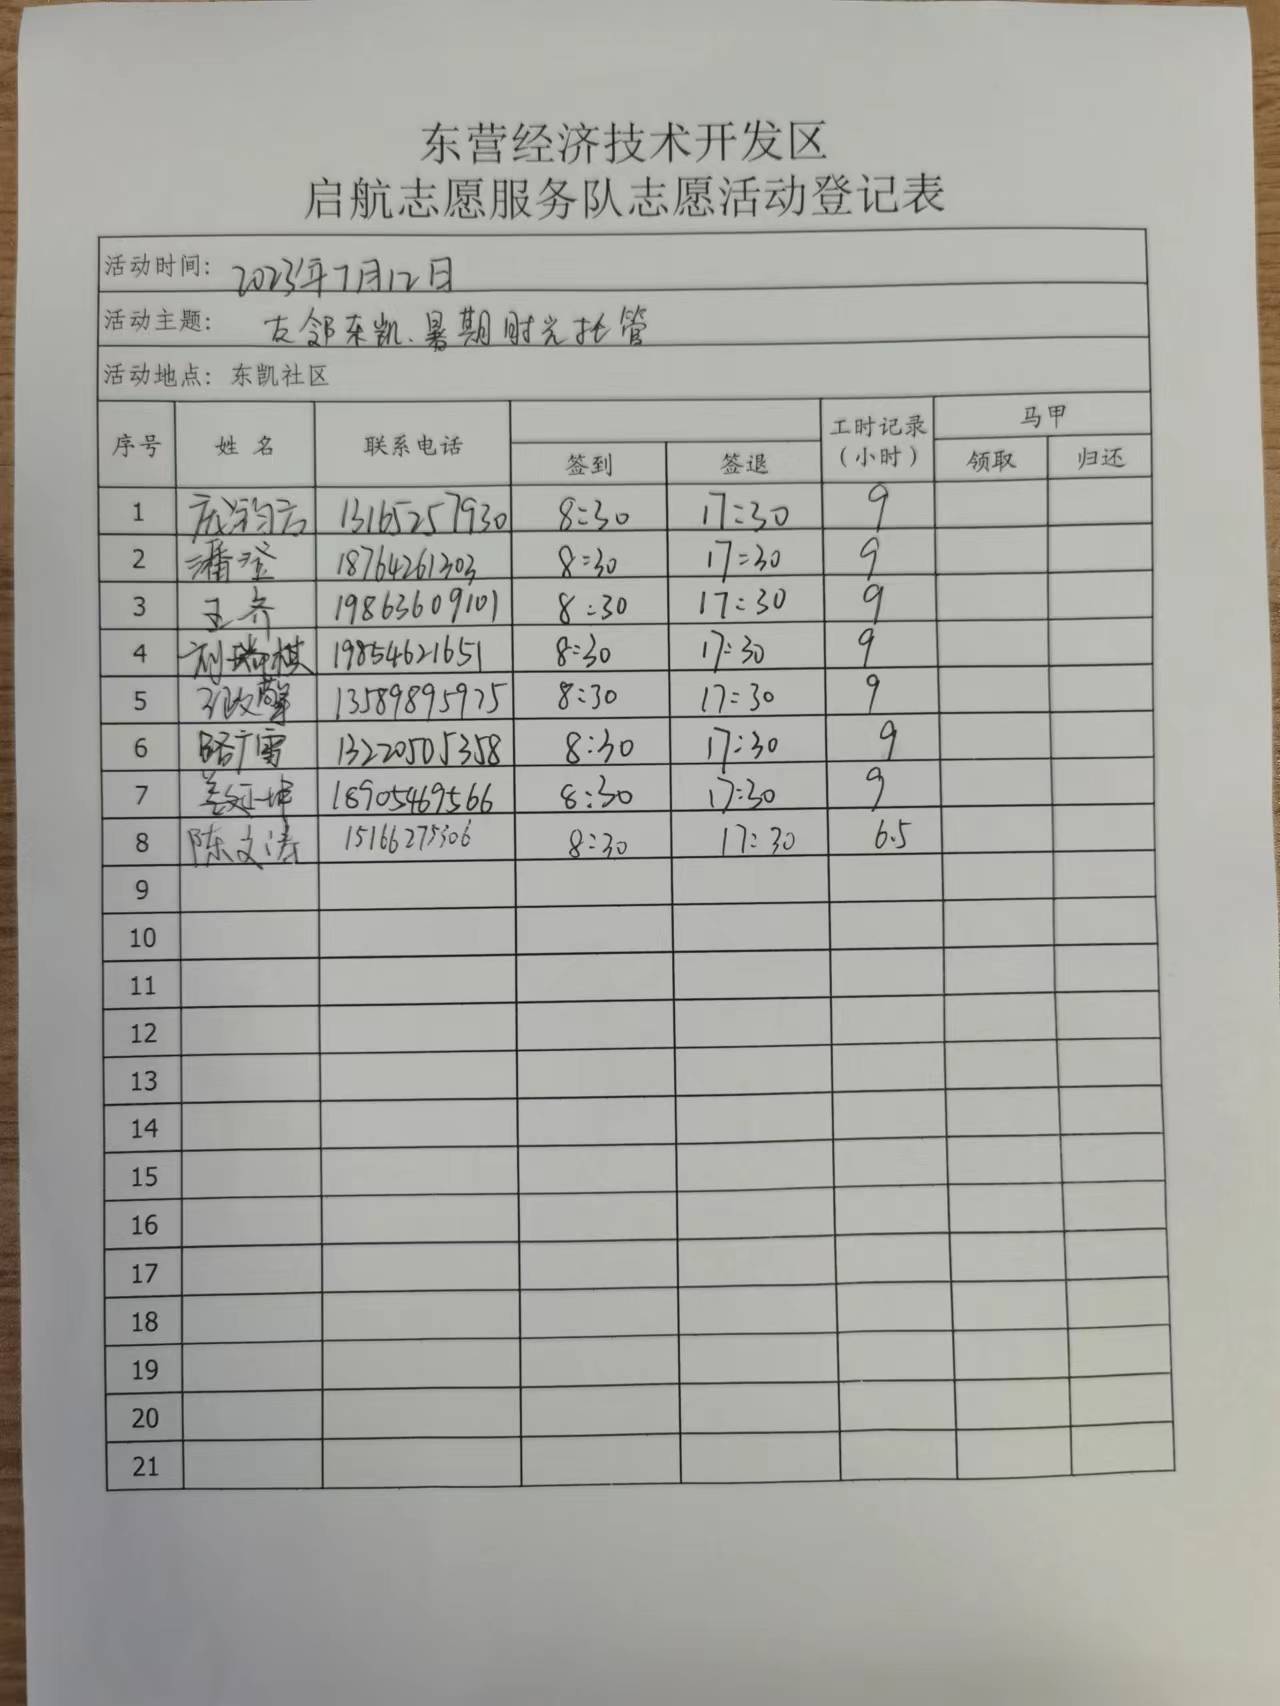 东营经济技术开发区
启航志愿服务队志愿活动登记表
活动时间: 2023年7月12日
活动主题: 友邻东凯.暑期时光托管
活动地点: 东凯社区
序号 姓名 联系电话 签到 签退 工时记录(小时) 马甲 领取 归还
1 13165257930 8:30 17:30 9
2 潘滢 18764261303 8:30 17:30 9
3 王齐 19863609101 8:30 17:30 9
4 刘瑞棋 19854621651 8:30 17:30 9
5 13589895975 8:30 17:30 9
6 路广雪 13220505358 8:30 17:30 9
7 18905469566 8:30 17:30 9
8 陈文涛 15166275306 8:30 17:30 6.5
9
10
11
12
13
14
15
16
17
18
19
20
21